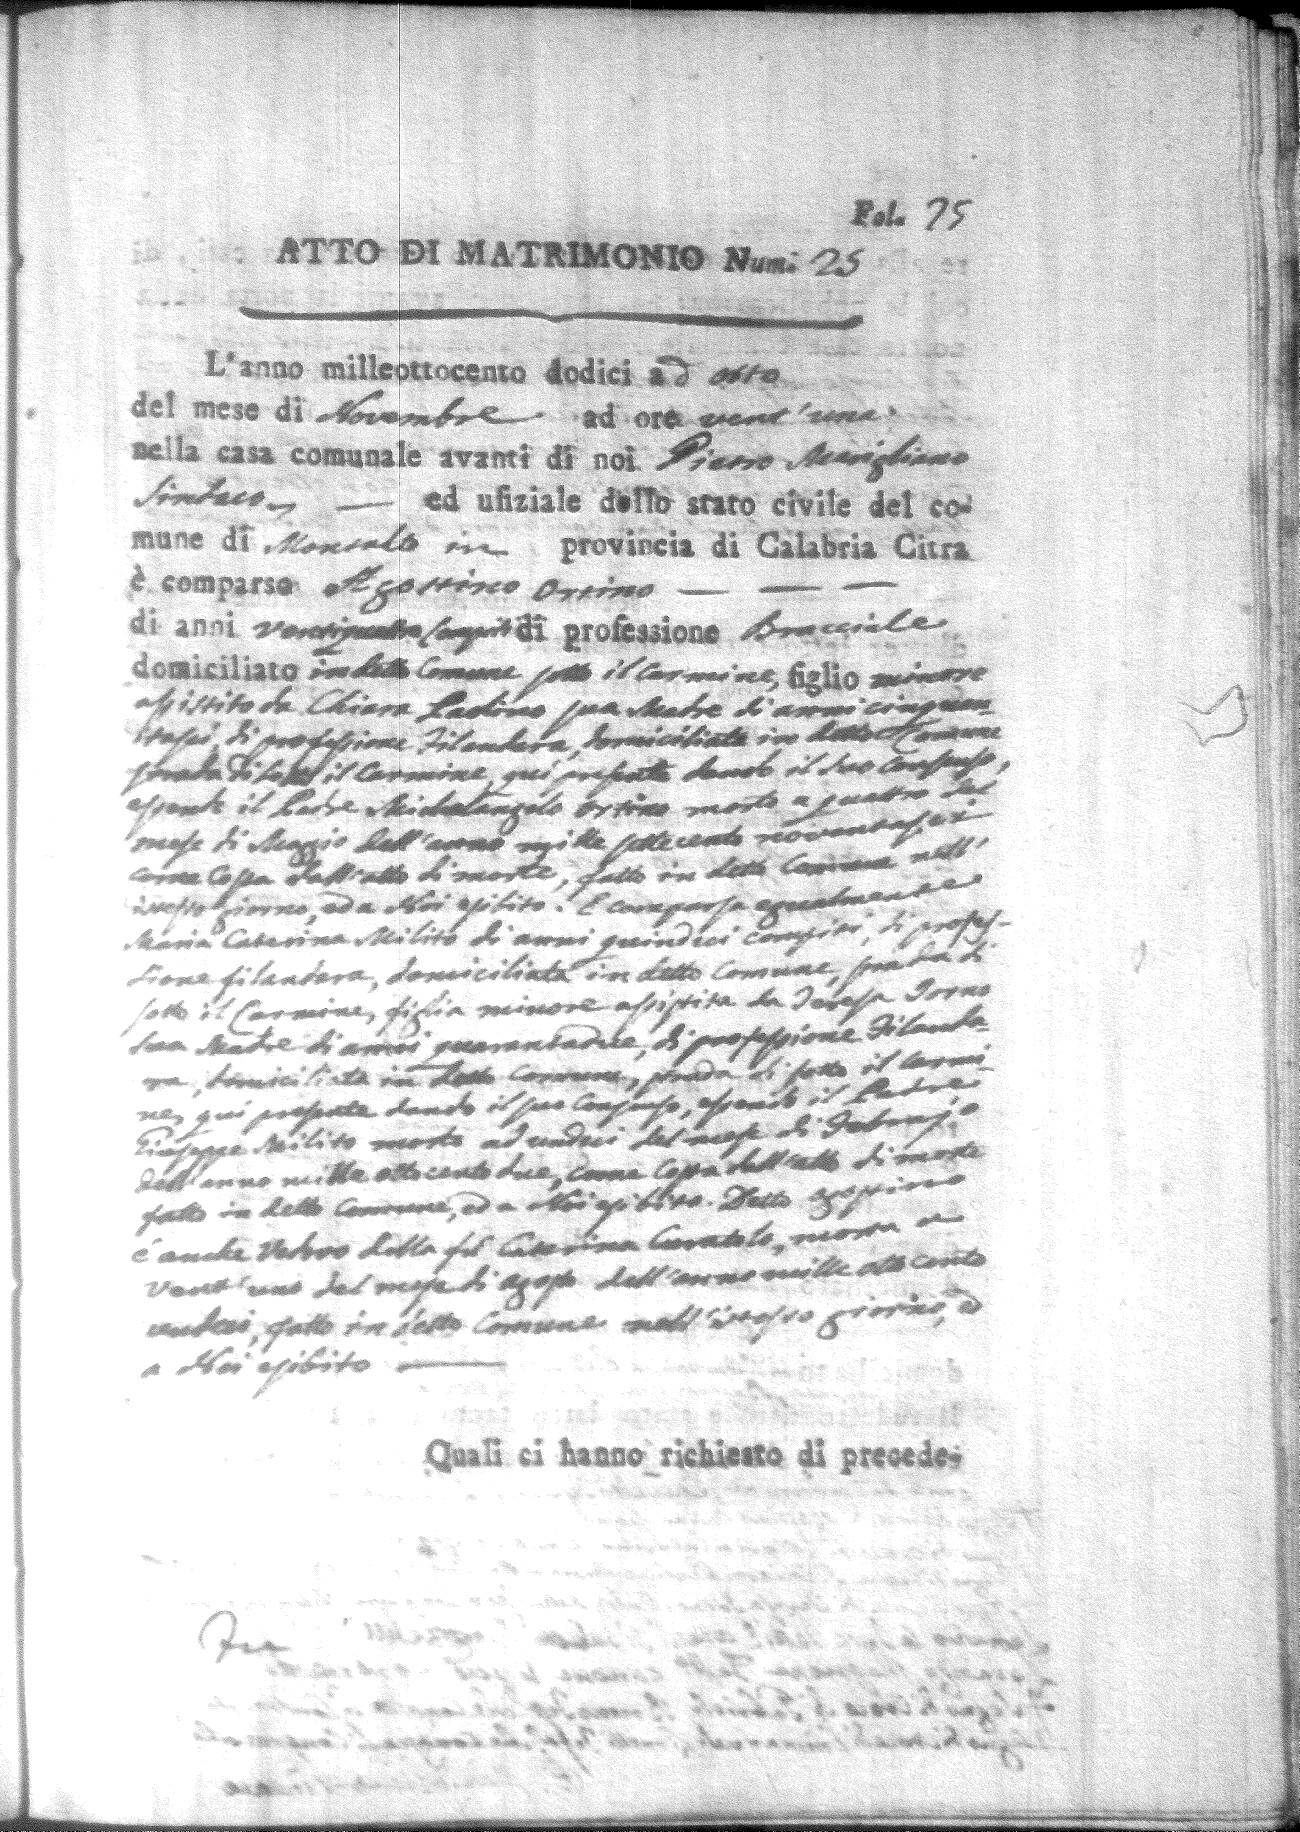 Fol. 25
ATTO DI MATRIMONIO Num. 25
L'anno milleottocento dodici ad otto
del mese di Novembre ad ore vent'una
nella casa comunale avanti di noi Pietro Marigliano
Sindaco ed ufiziale dello stato civile del co-
mune di Montalto in provincia di Calabria Citra
è comparso Agostino Orrino
di anni ventiquattro compiti di professione Bracciale
domiciliato in detto Comune sotto il Carmine, figlio minore
assistito da Chiara sua Madre di anni cinquan-
tasei, di professione Filandara, domiciliata in detto Comune
strada di sotto il Carmine, qui presente dando il suo consenso,
essendo il Padre Michelangelo Orrino morto a quattro del
mese di Maggio dell'anno mille settecento novantasei
come costa dall'atto di morte, fatto in detto Comune nell'
istesso giorno, ed a Noi esibito. È comparsa egualmente
Maria Caterina Milito di anni quindeci compiti, di profes-
sione filandara, domiciliata in detto Comune, strada di
sotto il Carmine, figlia minore assistita da Teresa
sua Madre di anni quarantadue, di professione Filanda-
ra, domiciliata in detto Comune, strada di sotto il Carmi-
ne, qui presente dando il suo consenso, essendo il Padre
Giuseppe Milito morto ad undeci del mese di Febrajo
dell'anno mille ottocento due, come costa dall'atto di morte
fatto in detto Comune, ed a Noi esibito. Detto Agostino
è anche Vedovo della fù Caterina Curatolo, morta a
vent'uno del mese di Agosto dell'anno mille ottocento
undeci, fatto in detto Comune nell'istesso giorno, ed
a Noi esibito
Quali ci hanno richiesto di precede-